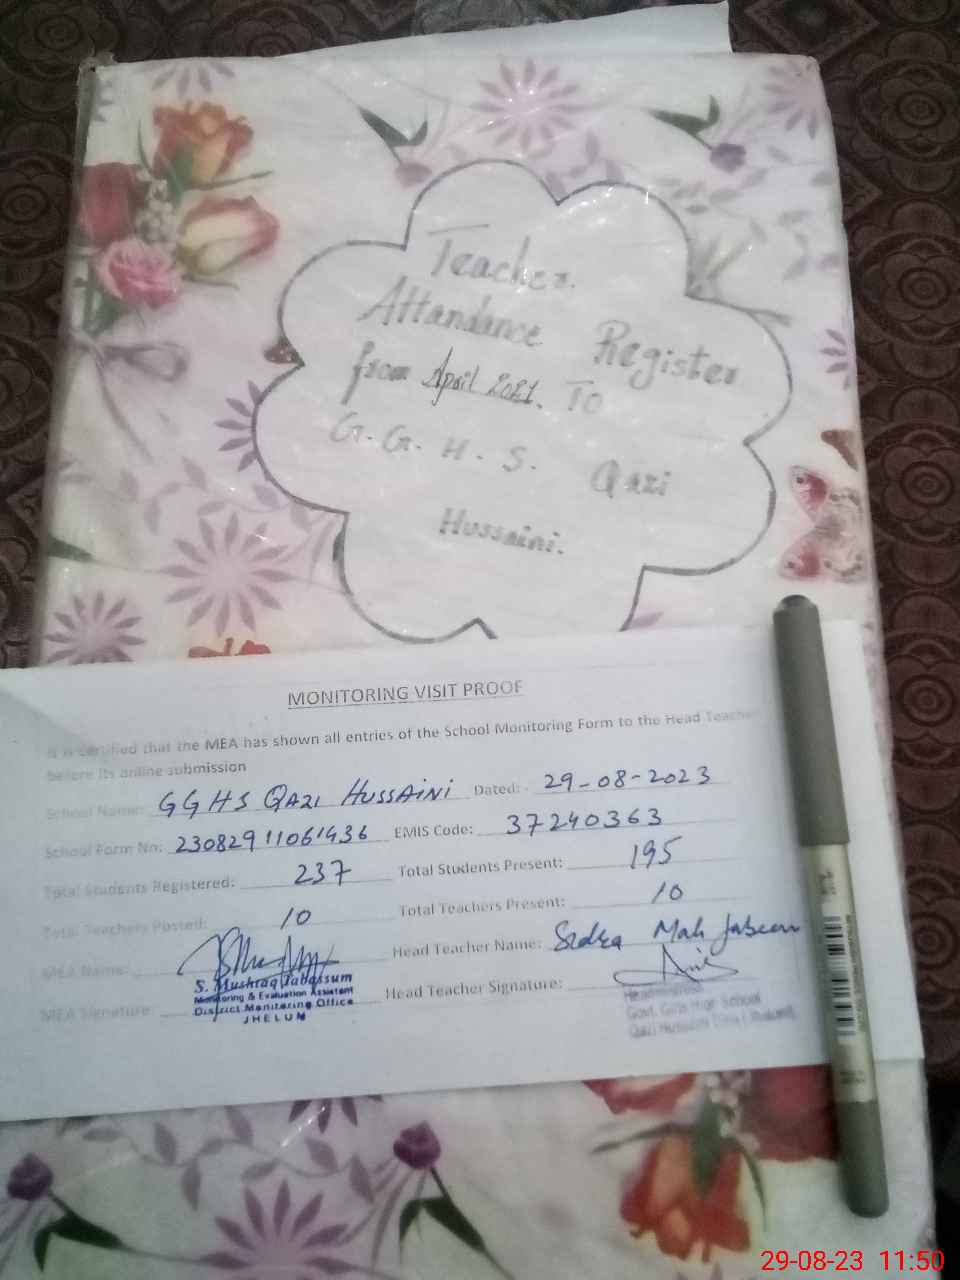 Teacher.
Attendance Register
from April 2021. To
G.G.H.S. Qazi
Hussaini.
MONITORING VISIT PROOF
It is certified that the MEA has shown all entries of the School Monitoring Form to the Head Teacher
before its online submission
School Name: GGHS QAZI HUSSAINI Dated: 29-08-2023
School Form No: 23082911061436 EMIS Code: 37240363
Total Students Registered: 237 Total Students Present: 195
Total Teachers Posted: 10 Total Teachers Present: 10
MEA Name: Head Teacher Name: Sidra Mah Jabeen
S. Mushtaq Tabassum
MEA Signature: Head Teacher Signature:
Monitoring & Evaluation Assistant
District Monitoring Office
JHELUM
Headmistress
Govt. Girls High School
Qazi Hussain
29-08-23 11:50